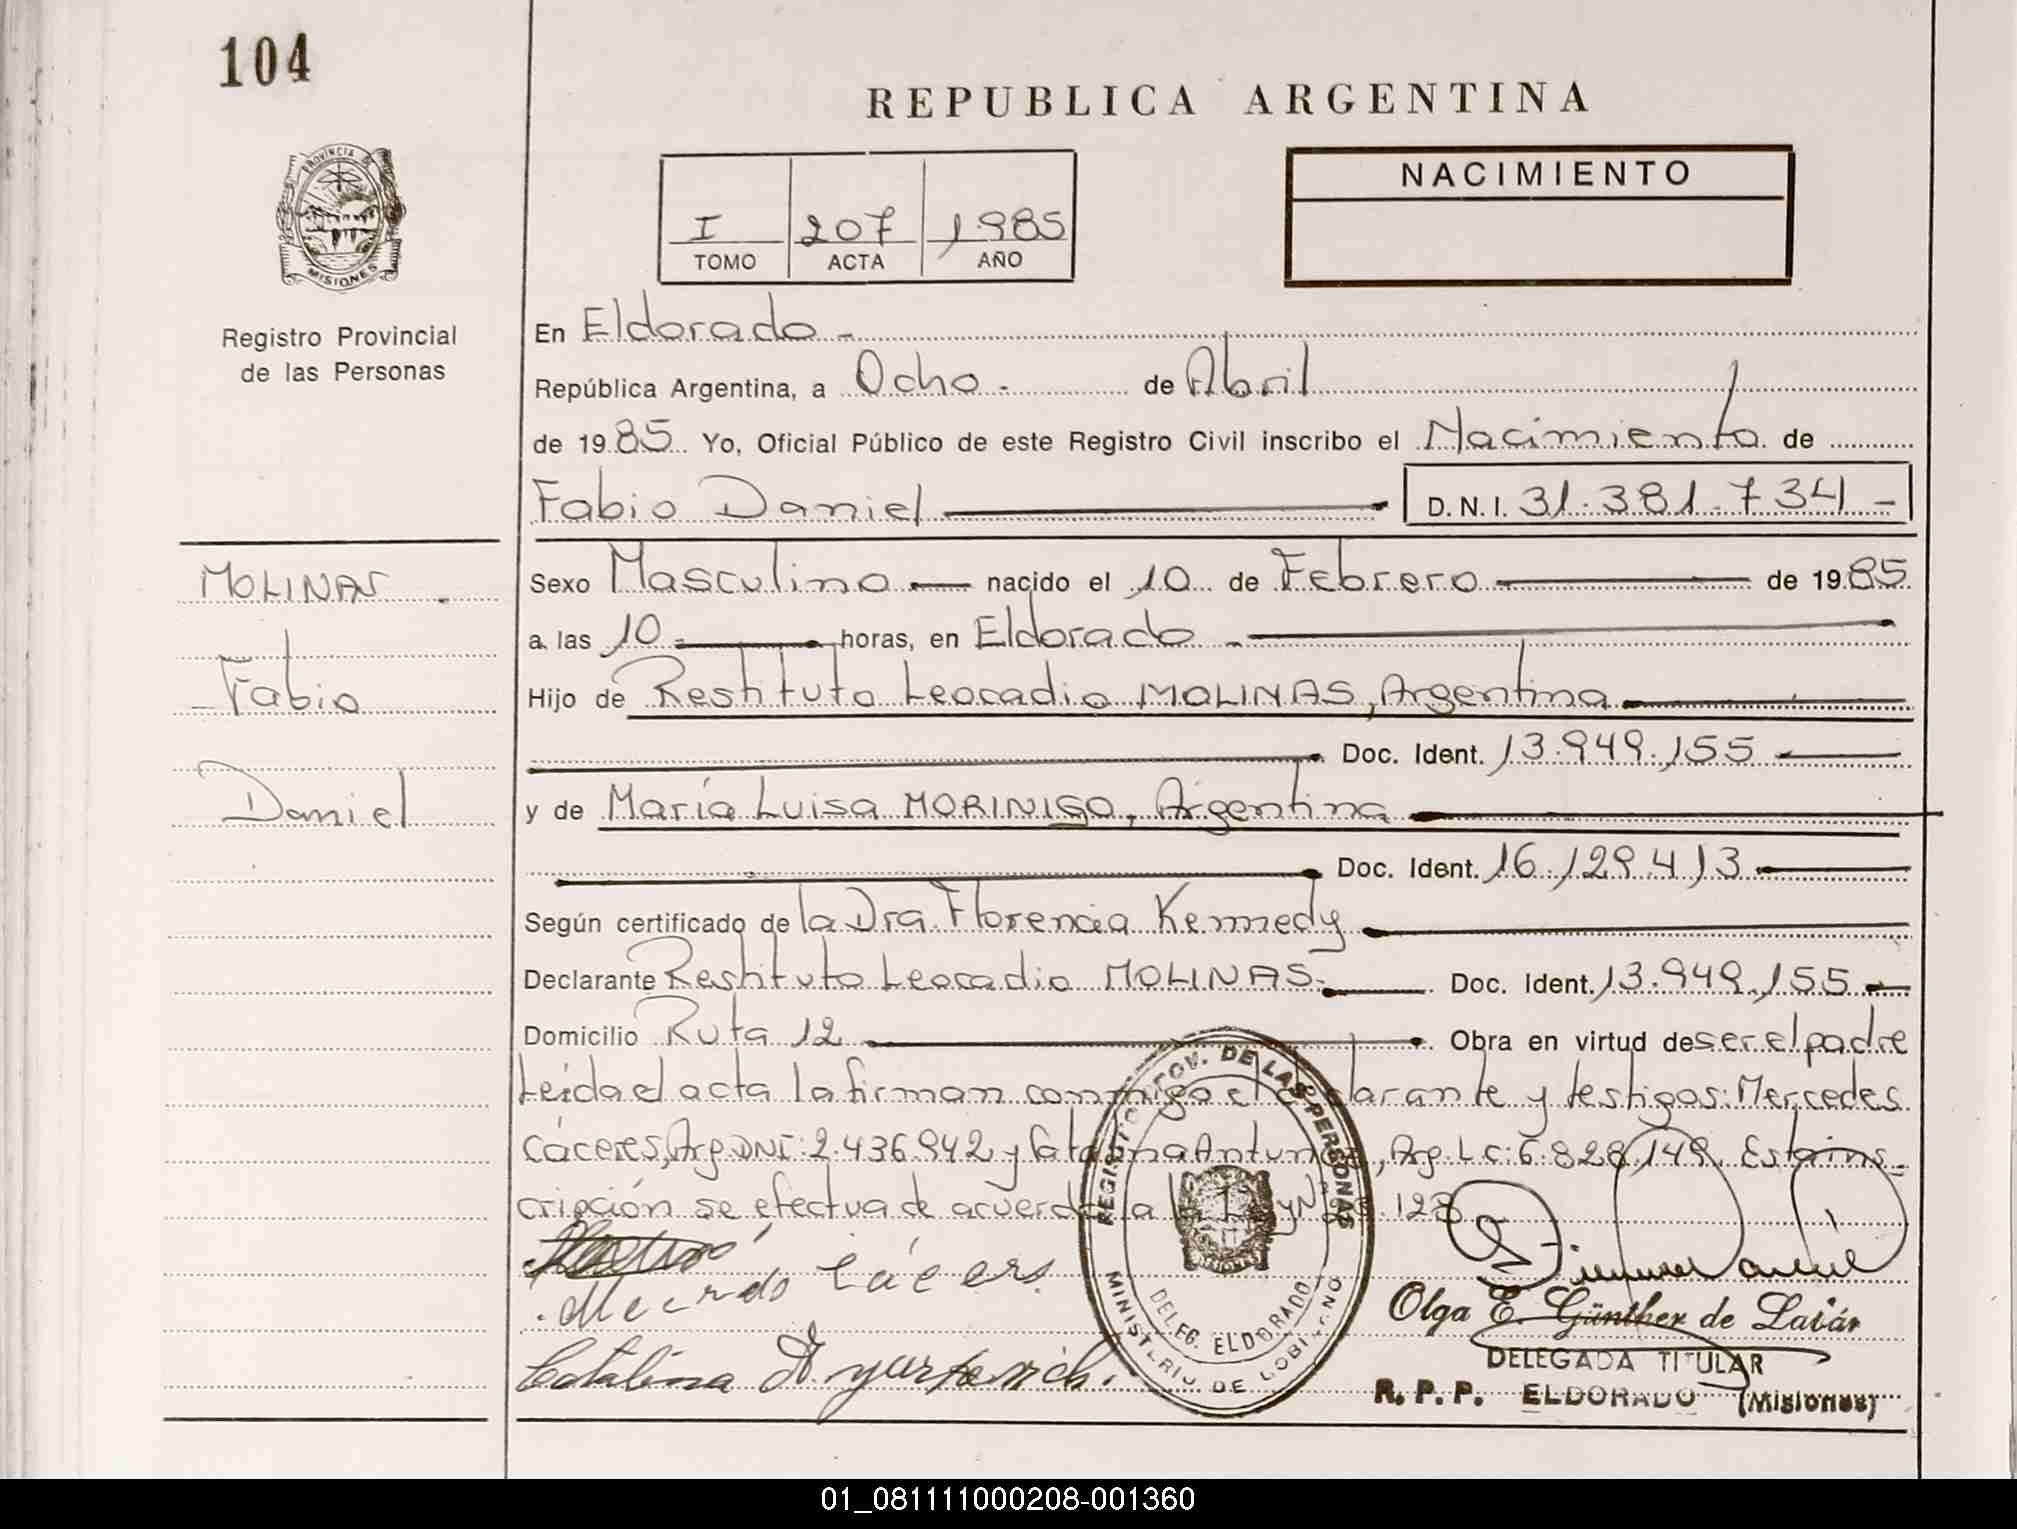 104
REPUBLICA ARGENTINA
PROVINCIA
MISIONES
NACIMIENTO
I 207 1985
TOMO ACTA AÑO
Registro Provincial
de las Personas
En Eldorado -
República Argentina, a Ocho.- de Abril
de 1985 Yo, Oficial Público de este Registro Civil inscribo el Nacimiento de
Fabio Daniel D.N.I. 31.381.734 -
MOLINAS.
Fabio
Daniel
Sexo Masculino nacido el 10 de Febrero de 1985
a las 10 horas, en Eldorado -
Hijo de Restituto Leocadio MOLINAS, Argentina
Doc. Ident. 13.949.155
y de María Luisa MORINIGO, Argentina
Doc. Ident. 16.129.413
Según certificado de la Dra. Florencia Kennedy
Declarante Restituto Leocadio MOLINAS. Doc. Ident. 13.949.155
Domicilio Ruta 12 Obra en virtud de ser el padre
Leida el acta la firman conmigo el declarante y testigos: Mercedes
Cáceres, Arg. DNI: 2.436.942 y Catalina Antunez, Arg. L.C: 6.828.149. Esta ins-
cripción se efectua de acuerdo a la Ley Nº 128
REGISTRO PROV. DE LAS PERSONAS
MINISTERIO DE GOBIERNO
DELEG. ELDORADO
Olga E. Günther de Laiár
DELEGADA TITULAR
R. P. P. ELDORADO (Misiones)
01_081111000208-001360